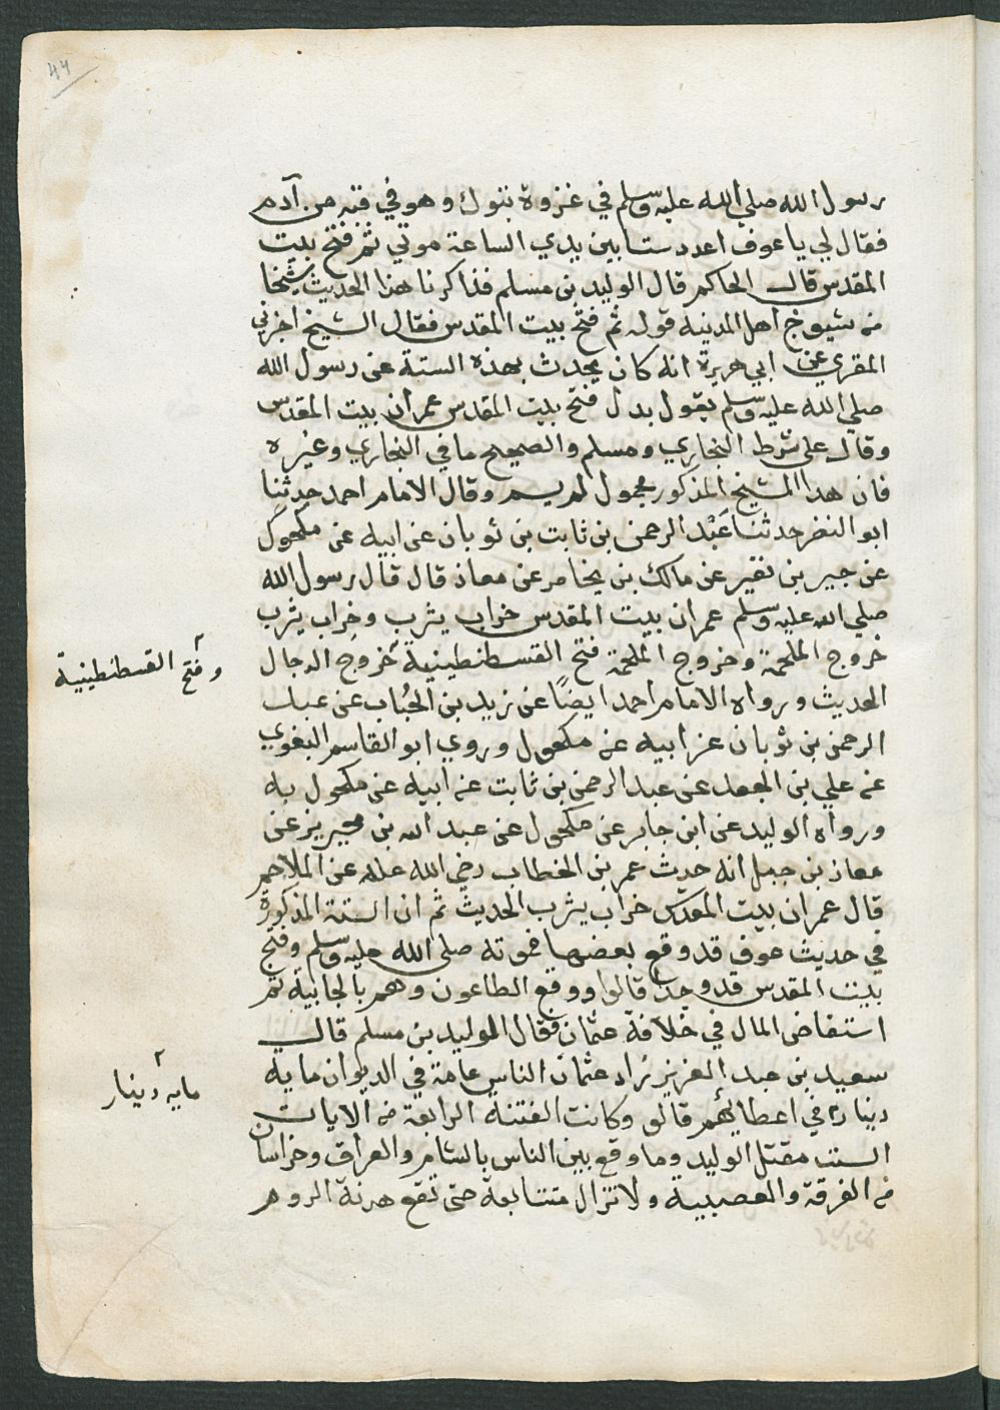 رسول الله صلي الله عليه وسلم في غزوة تبوك وهو في قبه من آدم
فقال لي يا عوف اعدد ستا بين يدي الساعة موتي ثم فتح بيت
المقدس قال الحاكم قال الوليد بن مسلم فذاكرنا هذا الحديث شيخا
من شيوخ اهل المدينة قوله ثم فتح بيت المقدس فقال الشيخ اخبرني
المقري عن ابي هريرة انه كان يحدث بهذه الستة عن رسول الله
صلي الله عليه وسلم يقول بدل فتح بيت المقدس عمران بيت المقدس
وقال على شرط البخاري ومسلم والصحيح ما في البخاري وغيره
فان هذا الشيخ المذكور مجهول لم يسم وقال الامام احمد حدثنا
ابو النضر حدثنا عبد الرحمن بن ثابت بن ثوبان عن ابيه عن مكحول
عن جبير بن نفير عن مالك بن يخامر عن معاذ قال قال رسول الله
صلي الله عليه وسلم عمران بيت المقدس خراب يثرب وخراب يثرب
خروج الملحمة وخروج الملحمة فتح القسطنطينية خروج الدجال
وفتح القسطنطينية
الحديث ورواه الامام احمد ايضًا عن زيد بن الحُباب عن عبد
الرحمن بن ثوبان عن ابيه عن مكحول وروي ابو القاسم البغوي
عن علي بن الجعد عن عبد الرحمن بن ثابت عن ابيه عن مكحول به
ورواه الوليد عن ابن جابر عن مكحول عن عبد الله بن محيريز عن
معاذ بن جبل انه حدث عمر بن الخطاب رضي الله عنه عن الملاحم
قال عمران بيت المقدس خراب يثرب الحديث ثم ان الستة المذكورة
في حديث عوف قد وقع بعضها فموته صلي الله عليه وسلم وفتح
بيت المقدس قد وجدا قالوا ووقع الطاعون وهم بالجابية ثم
استفاض المال في خلافة عثمان فقال الوليد بن مسلم قال
سعيد بن عبد العزيز زاد عثمان الناس عامة في الديوان مايه
مايه دينار
دينار في اعطائهم قالو وكانت الفتنة الرابعة من الايات
الست مقتل الوليد وما وقع بين الناس بالشام والعراق وخراسان
من الفرقة والعصبية ولا تزال متتابعة حتى تقع هدنة الروم